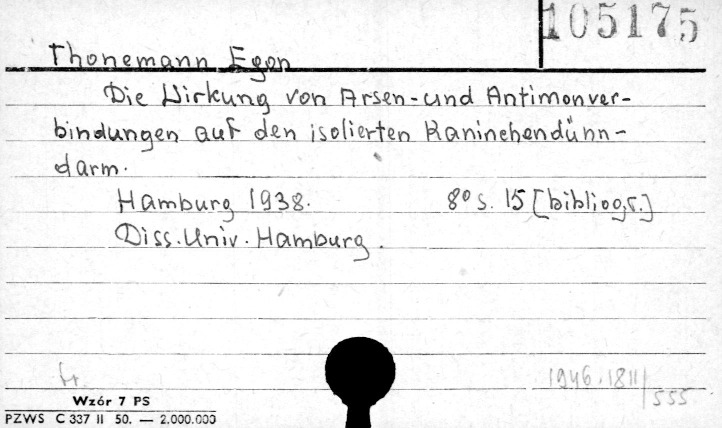 105175
Thonemann Egon
Die Wirkung von Arsen- und Antimonver-
bindungen auf den isolierten Kaninchendünn-
darm.
Hamburg 1938. 8° s. 15 [bibliogr.]
Diss. Univ. Hamburg.
1946.1811/555
Wzór 7 PS
PZWS C 337 II 50. — 2,000.000